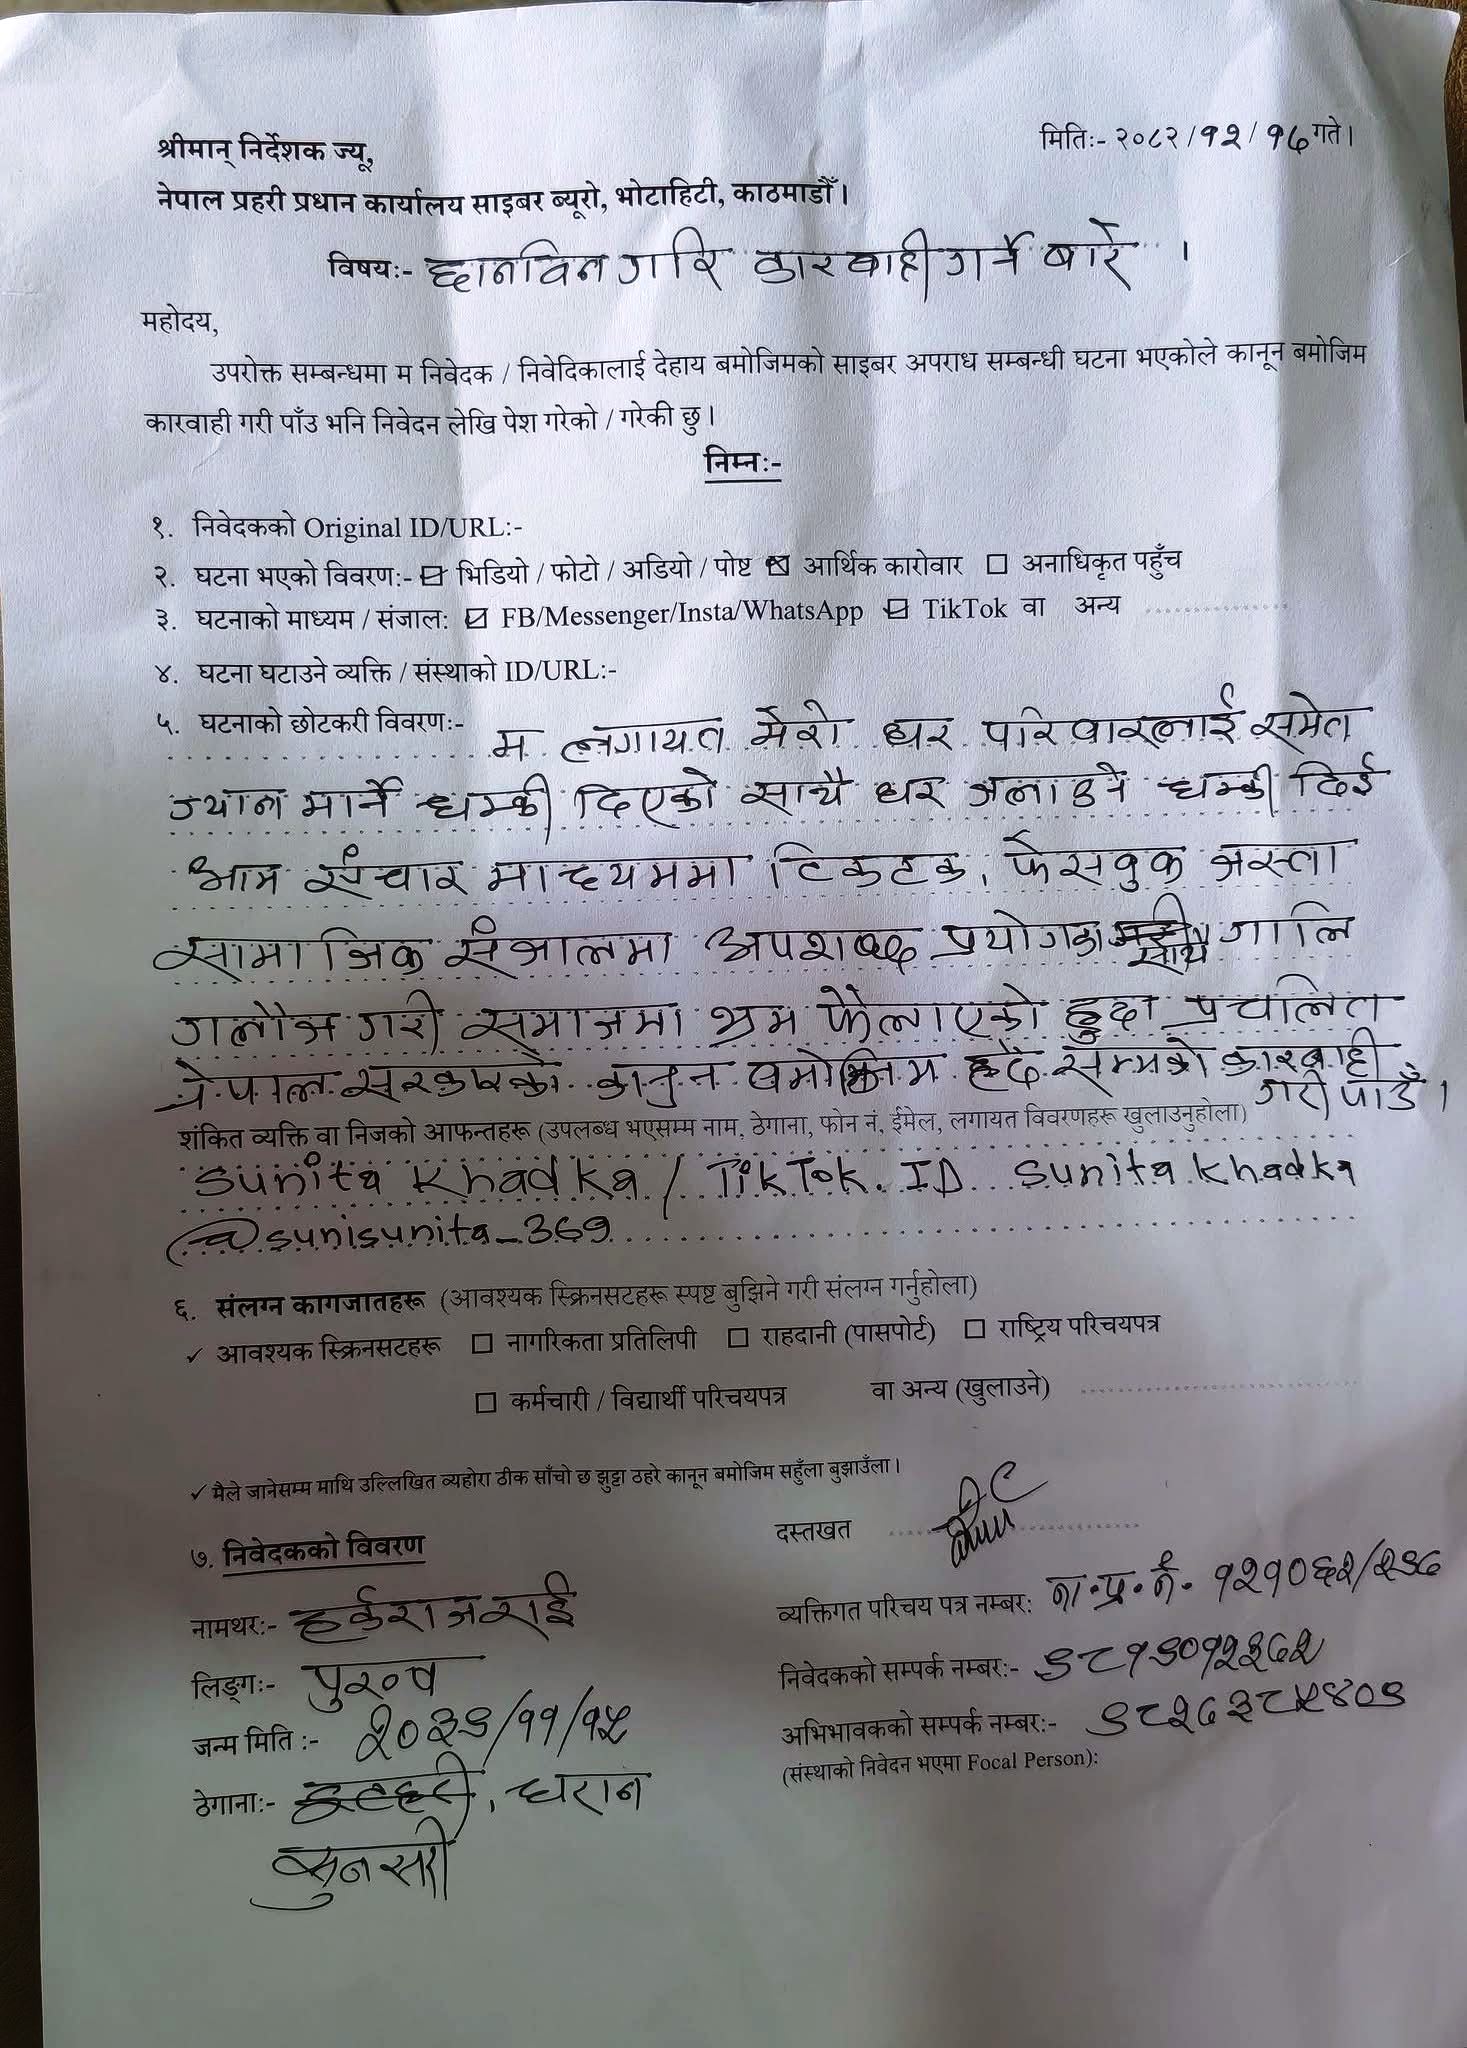 मितिः- २०८२/१२/१६ गते।
श्रीमान् निर्देशक ज्यू,
नेपाल प्रहरी प्रधान कार्यालय साइबर ब्यूरो, भोटाहिटी, काठमाडौँ।
विषयः- छानविन गरि कारबाही गर्ने बारे ।
महोदय,
उपरोक्त सम्बन्धमा म निवेदक / निवेदिकालाई देहाय बमोजिमको साइबर अपराध सम्बन्धी घटना भएकोले कानून बमोजिम
कारवाही गरी पाँउ भनि निवेदन लेखि पेश गरेको / गरेकी छु।
निम्नः-
१. निवेदकको Original ID/URL:-
२. घटना भएको विवरणः- ☑ भिडियो / फोटो / अडियो / पोष्ट ☒ आर्थिक कारोवार ☐ अनाधिकृत पहुँच
३. घटनाको माध्यम / संजालः ☑ FB/Messenger/Insta/WhatsApp ☑ TikTok वा अन्य
४. घटना घटाउने व्यक्ति / संस्थाको ID/URL:-
५. घटनाको छोटकरी विवरणः- म लगायत मेरो घर परिवारलाई समेत
ज्यान मार्ने धम्की दिएको साथै घर जलाउने धम्की दिई
आम संचार माध्यममा टिकटक, फेसबुक जस्ता
सामाजिक संजालमा अपशब्द प्रयोगका साथै गालि
गलौज गरी समाजमा भ्रम फैलाएको हुदा प्रचलित
नेपाल सरकारको कानुन बमोजिम हदै सम्मको कारबाही
गरी पाउँ।
शंकित व्यक्ति वा निजको आफन्तहरू (उपलब्ध भएसम्म नाम, ठेगाना, फोन नं, ईमेल, लगायत विवरणहरू खुलाउनुहोला)
Sunita Khadka / TikTok. ID Sunita Khadka
@sunisunita_369
६. संलग्न कागजातहरू (आवश्यक स्क्रिनसटहरू स्पष्ट बुझिने गरी संलग्न गर्नुहोला)
✓ आवश्यक स्क्रिनसटहरू ☐ नागरिकता प्रतिलिपी ☐ राहदानी (पासपोर्ट) ☐ राष्ट्रिय परिचयपत्र
☐ कर्मचारी / विद्यार्थी परिचयपत्र वा अन्य (खुलाउने)
✓ मैले जानेसम्म माथि उल्लिखित व्यहोरा ठीक साँचो छ झुट्ठा ठहरे कानून बमोजिम सहुँला बुझाउँला।
दस्तखत
७. निवेदकको विवरण
नामथरः- हर्कराज राई
व्यक्तिगत परिचय पत्र नम्बरः ना.प्र.नं. १२१०६२/२९८
लिङ्गः- पुरुष
निवेदकको सम्पर्क नम्बरः- ९८१९०१२३८२
जन्म मिति :- २०३९/११/१५
अभिभावकको सम्पर्क नम्बरः- ९८२८३८५४०९
(संस्थाको निवेदन भएमा Focal Person):
ठेगानाः- इटहरी, धरान
सुनसरी